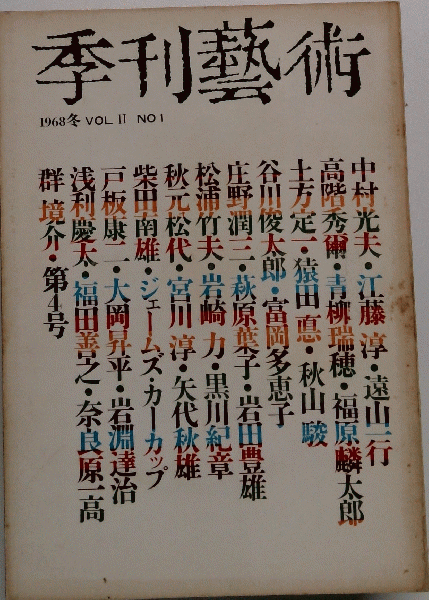 季刊藝術
1968冬 VOL II NO1
中村光夫・江藤淳・遠山一行
高階秀爾・青柳瑞穂・福原麟太郎
土方定一・猿田悳・秋山駿
谷川俊太郎・富岡多恵子
庄野潤三・萩原葉子・岩田豊雄
松浦竹夫・岩崎力・黒川紀章
秋元松代・宮川淳・矢代秋雄
柴田南雄・ジェームズ・カーカップ
戸板康二・大岡昇平・岩淵達治
浅利慶太・福田善之・奈良原一高
群境介・第4号